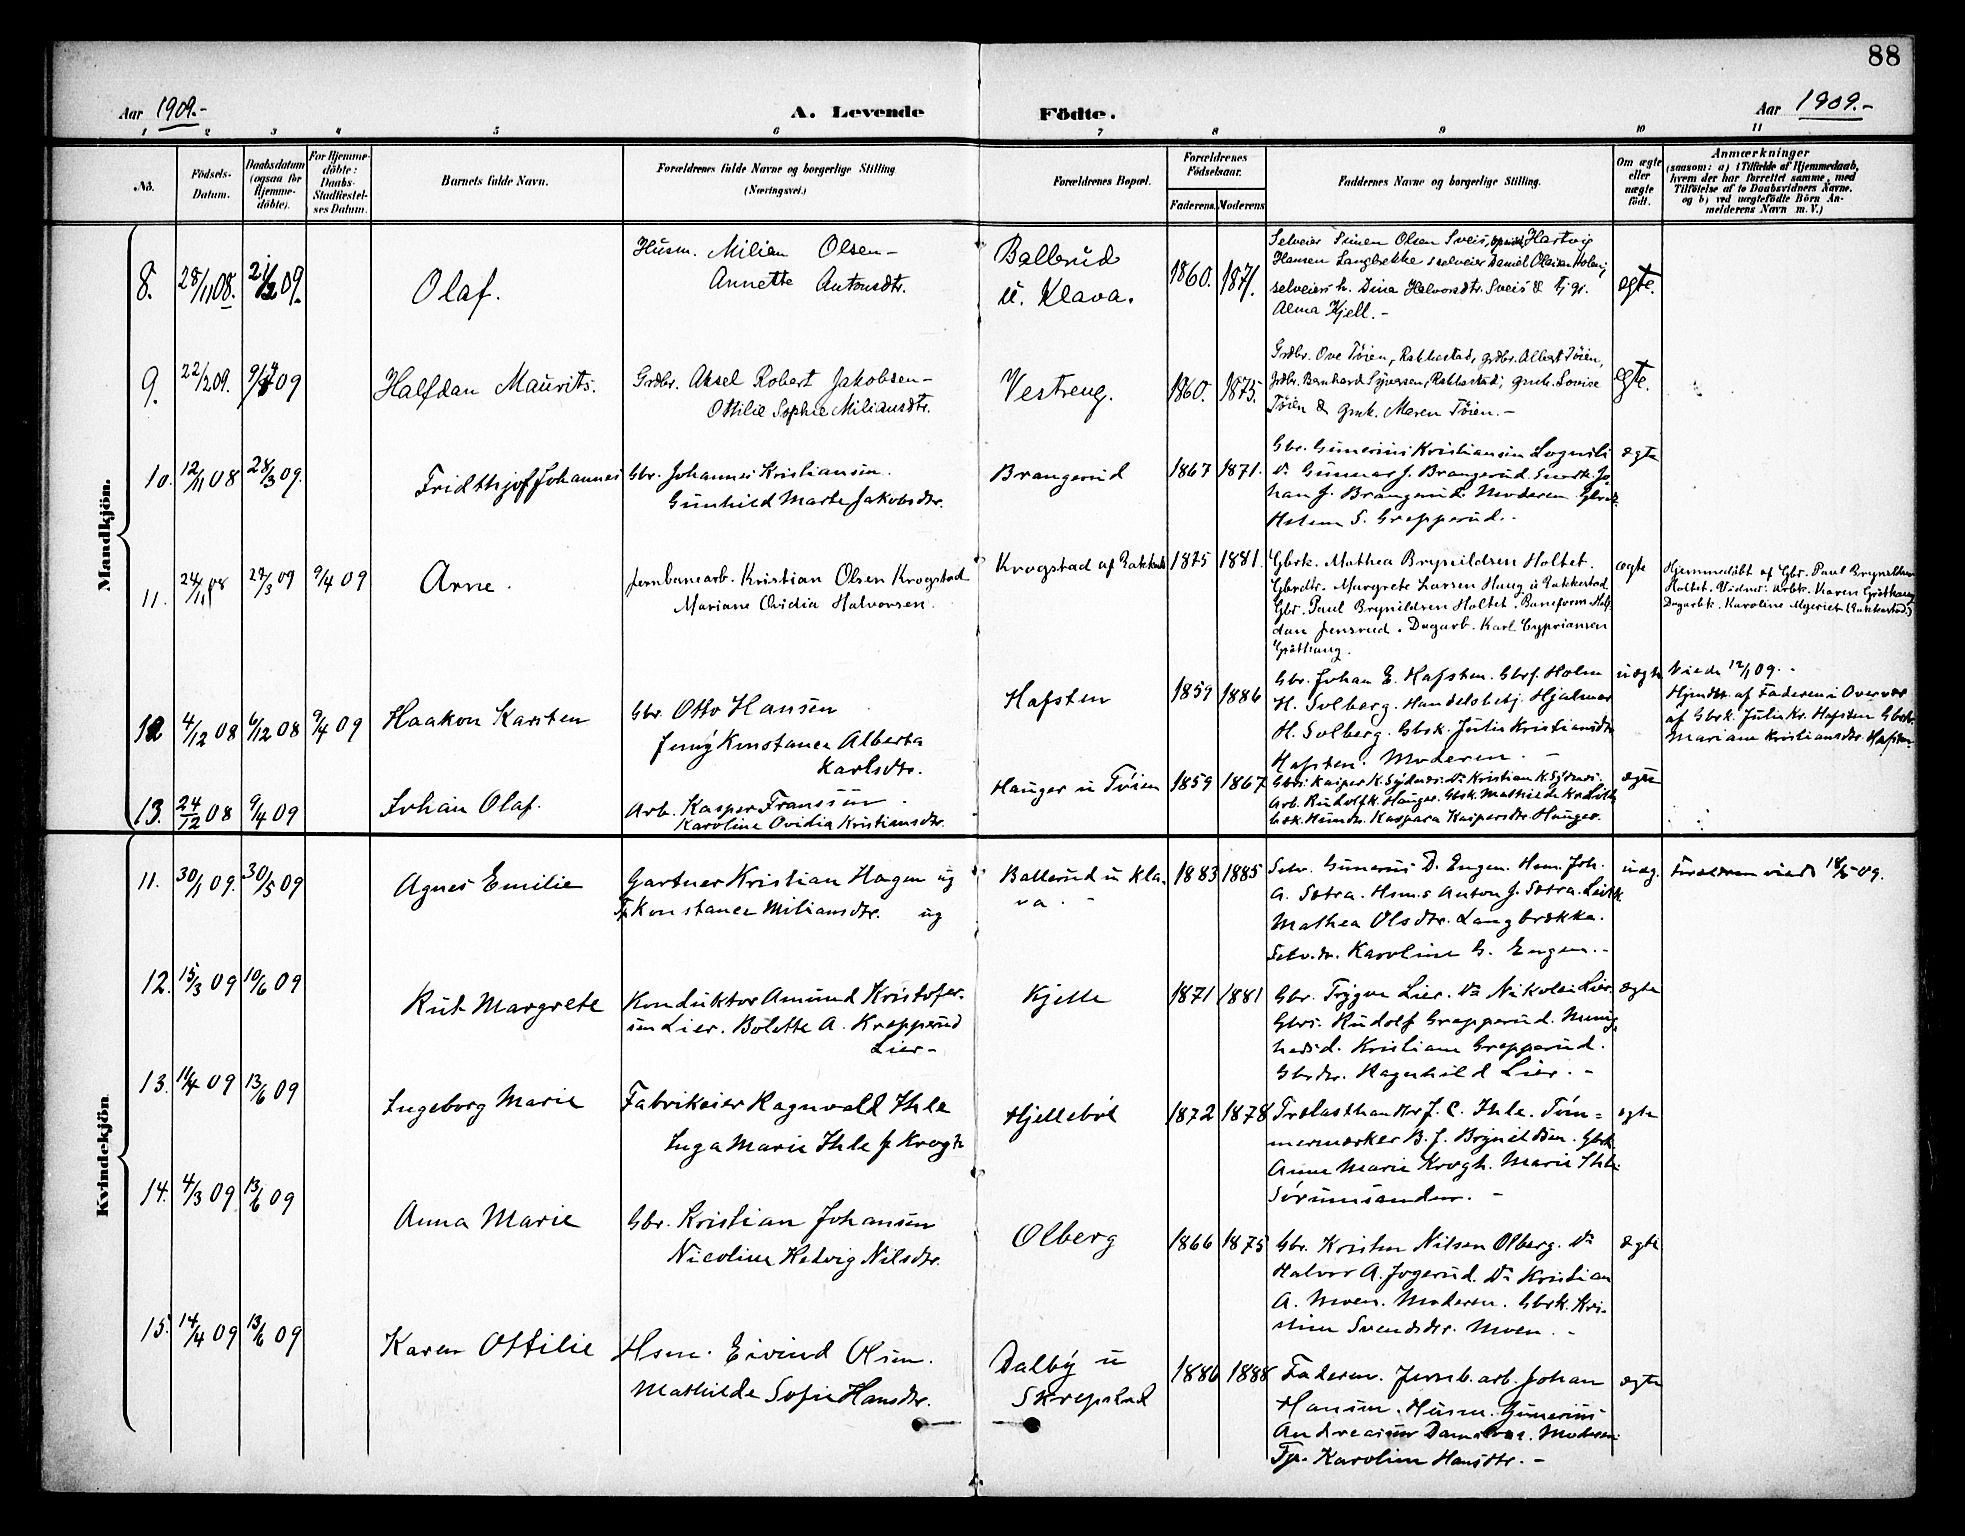 88
Aar 1909.-
A. Levende
Födte.
Aar 1909.-
1 2 3 4 5 6 7 8 9 10 11
No.
Födsels-Datum.
Daabsdatum (ogsaa for Hjemmedöbte).
For Hjemmedöbte: Daabs-Stadfæstelses Datum.
Barnets fulde Navn.
Forældrenes fulde Navne og borgerlige Stilling (Næringsvei.)
Forældrenes Bopæl.
Forældrenes Födselsaar.
Faderens. Moderens
Faddernes Navne og borgerlige Stilling.
Om ægte eller uægte födt.
Anmærkninger
(saasom: a) i Tilfælde af Hjemmedaab, hvem der har forrettet samme, med Tilföielse af to Daabsvidners Navne. og b) ved uægtefödte Börn Anmelderens Navn m. V.)
Mandkjön.
8. 28/11 08. 21/2 09. Olaf.
Husm. Milian Olsen-
Annette Antonsdtr.
Ballerud
u. Klava.
1860. 1871.
Selveier Simen Olsen Sveis, Hartvig
Hansen Langbrekke, selveier Daniel
selveiers h. Dina Halvorsdtr. Sveis & tj. gr.
Alma Kjell.-
ægte.
9. 22/2 09. 9/4 09 Halfdan Maurits.
Grdbr. Aksel Robert Jakobsen-
Ottilie Sophie Miliansdtr.
Vestreng.
1860. 1875.
Grdbr. Ove Tøien, Rakkestad, grdbr. Albert Tøien,
Grdbr. Bernhard Syversen, Rakkestad, gmk. Lovise
Tøien & gmk. Maren Tøien.-
ægte.
10. 12/11 08 28/3 09. Fridthjof Johannes
Gbr. Johannes Kristiansen.
Gunhild Marte Jakobsdtr.
Brangerud
1867 1871.
Gbr. Gunerius Kristiansen
Do Gunnar J. Brangerud. Jo-
han J. Brangerud. Moderen.
S. Grepperud.-
ægte
11. 24/11 08 27/3 09 9/4 09 Arne.
Jernbanearb. Kristian Olsen Krogstad
Mariane Ovidia Halvorsen.
Krogstad af Rakkestad
1875 1881.
Gbrk. Mathea Brynildsen Holtet.
Gbrdtr. Margrete Larsen Haug u Rakkestad
Gbr. Paul Brynildsen Holtet. Baneform. Half-
dan Jensrud. Dagarb. Karl Cypriansen
Gråthaug.
ægte
Hjemmedöbt af Gbr. Paul Brynildsen
Holtet. Vidner: Arbk. Karen Gråthaug
Dagarbk. Karoline (Rakkestad)
12 4/12 08 6/12 08 9/4 09 Haakon Karsten
Gbr. Otto Hansen
Jenny Konstance Alberta
Karlsdtr.
Hafsten
1859 1886
Gbr. Johan E. Hafsten. Gbrf. Holm
H. Solberg. Handelsbetj. Hjalmar
H. Solberg. Gbrk. Julie Kristiansdtr
Hafsten. Moderen.-
uægte
Viede 12/1 09.-
Hjmdt. af Faderen i Overvær
af Gbrk. Julie Kr. Hafsten Gbrk.
Mariane Kristiansdtr. Hafsten
13. 24/12 08 9/4 09 Johan Olaf.
Arb. Kasper Franssen.
Karoline Ovidia Kristiansdtr.
Hauger u Tøien
1859 1867
Do Kristian K.
Arb. Rudolf K. Hauger. Gbrk. Mathilde
Kaspara Kaspersdtr Hauger.
ægte
Kvindekjön
11. 30/1 09. 30/5 09 Agnes Emilie
Gartner Kristian Hagen ug
Tj. Konstance Miliansdtr. ug
Ballerud u Kla-
va.-
1883 1885
Selv. Gunerius D. Engen. Hsm. Joh.
A. Sætra. Hsms Anton J. Sætra.
Mathea Olsdtr. Langbrekke.
Selv.dr. Karoline G. Engen.-
uæg.
Forældrene viede 18/5 09.
12. 15/3 09 10/6 09 Rut Margrete
Konduktør Amund Kristofer-
sen Lier. Bolette A. Krepperud
Lier-
Kjelle
1871 1881
Gbr. Trygve Lier. Do Nikolai Lier
Gbrs. Rudolf Grepperud. Menig-
hedsd. Kristiane Grepperud.
Gbrdtr. Ragnhild Lier.-
ægte
13. 11/4 09 13/6 09 Ingeborg Marie
Fabrikeier Ragnvald Ihle
Inga Marie Ihle f. Krogh
Hjellebøl
1872 1878
Trælasthandler J. C. Ihle. Tøm-
mermærker B. J. Brynildsen. Gbrk.
Anne Marie Krogh. Marie Ihle
Sørumsanden.-
ægte
14. 4/3 09 13/6 09 Anna Marie
Gbr. Kristian Johansen
Nicoline Hedvig Nilsdtr.
Olberg
1866 1875
Gbr. Kristen Nilsen Olberg. Do
Halvor A. Jogerud. Do Kristian
A. Moen. Moderen. Gbrk. Kri-
stine Svendsdtr. Moen.-
ægte
15. 14/4 09 13/6 09 Karen Ottilie
Hsm. Eivind Olsen.
Mathilde Sofie Hansdtr.
Dalby u
Skrepstad
1886 1888
Faderen. Jernb. arb. Johan
Hansen. Husm. Gunerius
Andreassen Moderen
Tjp. Karoline Hansdtr.-
ægte